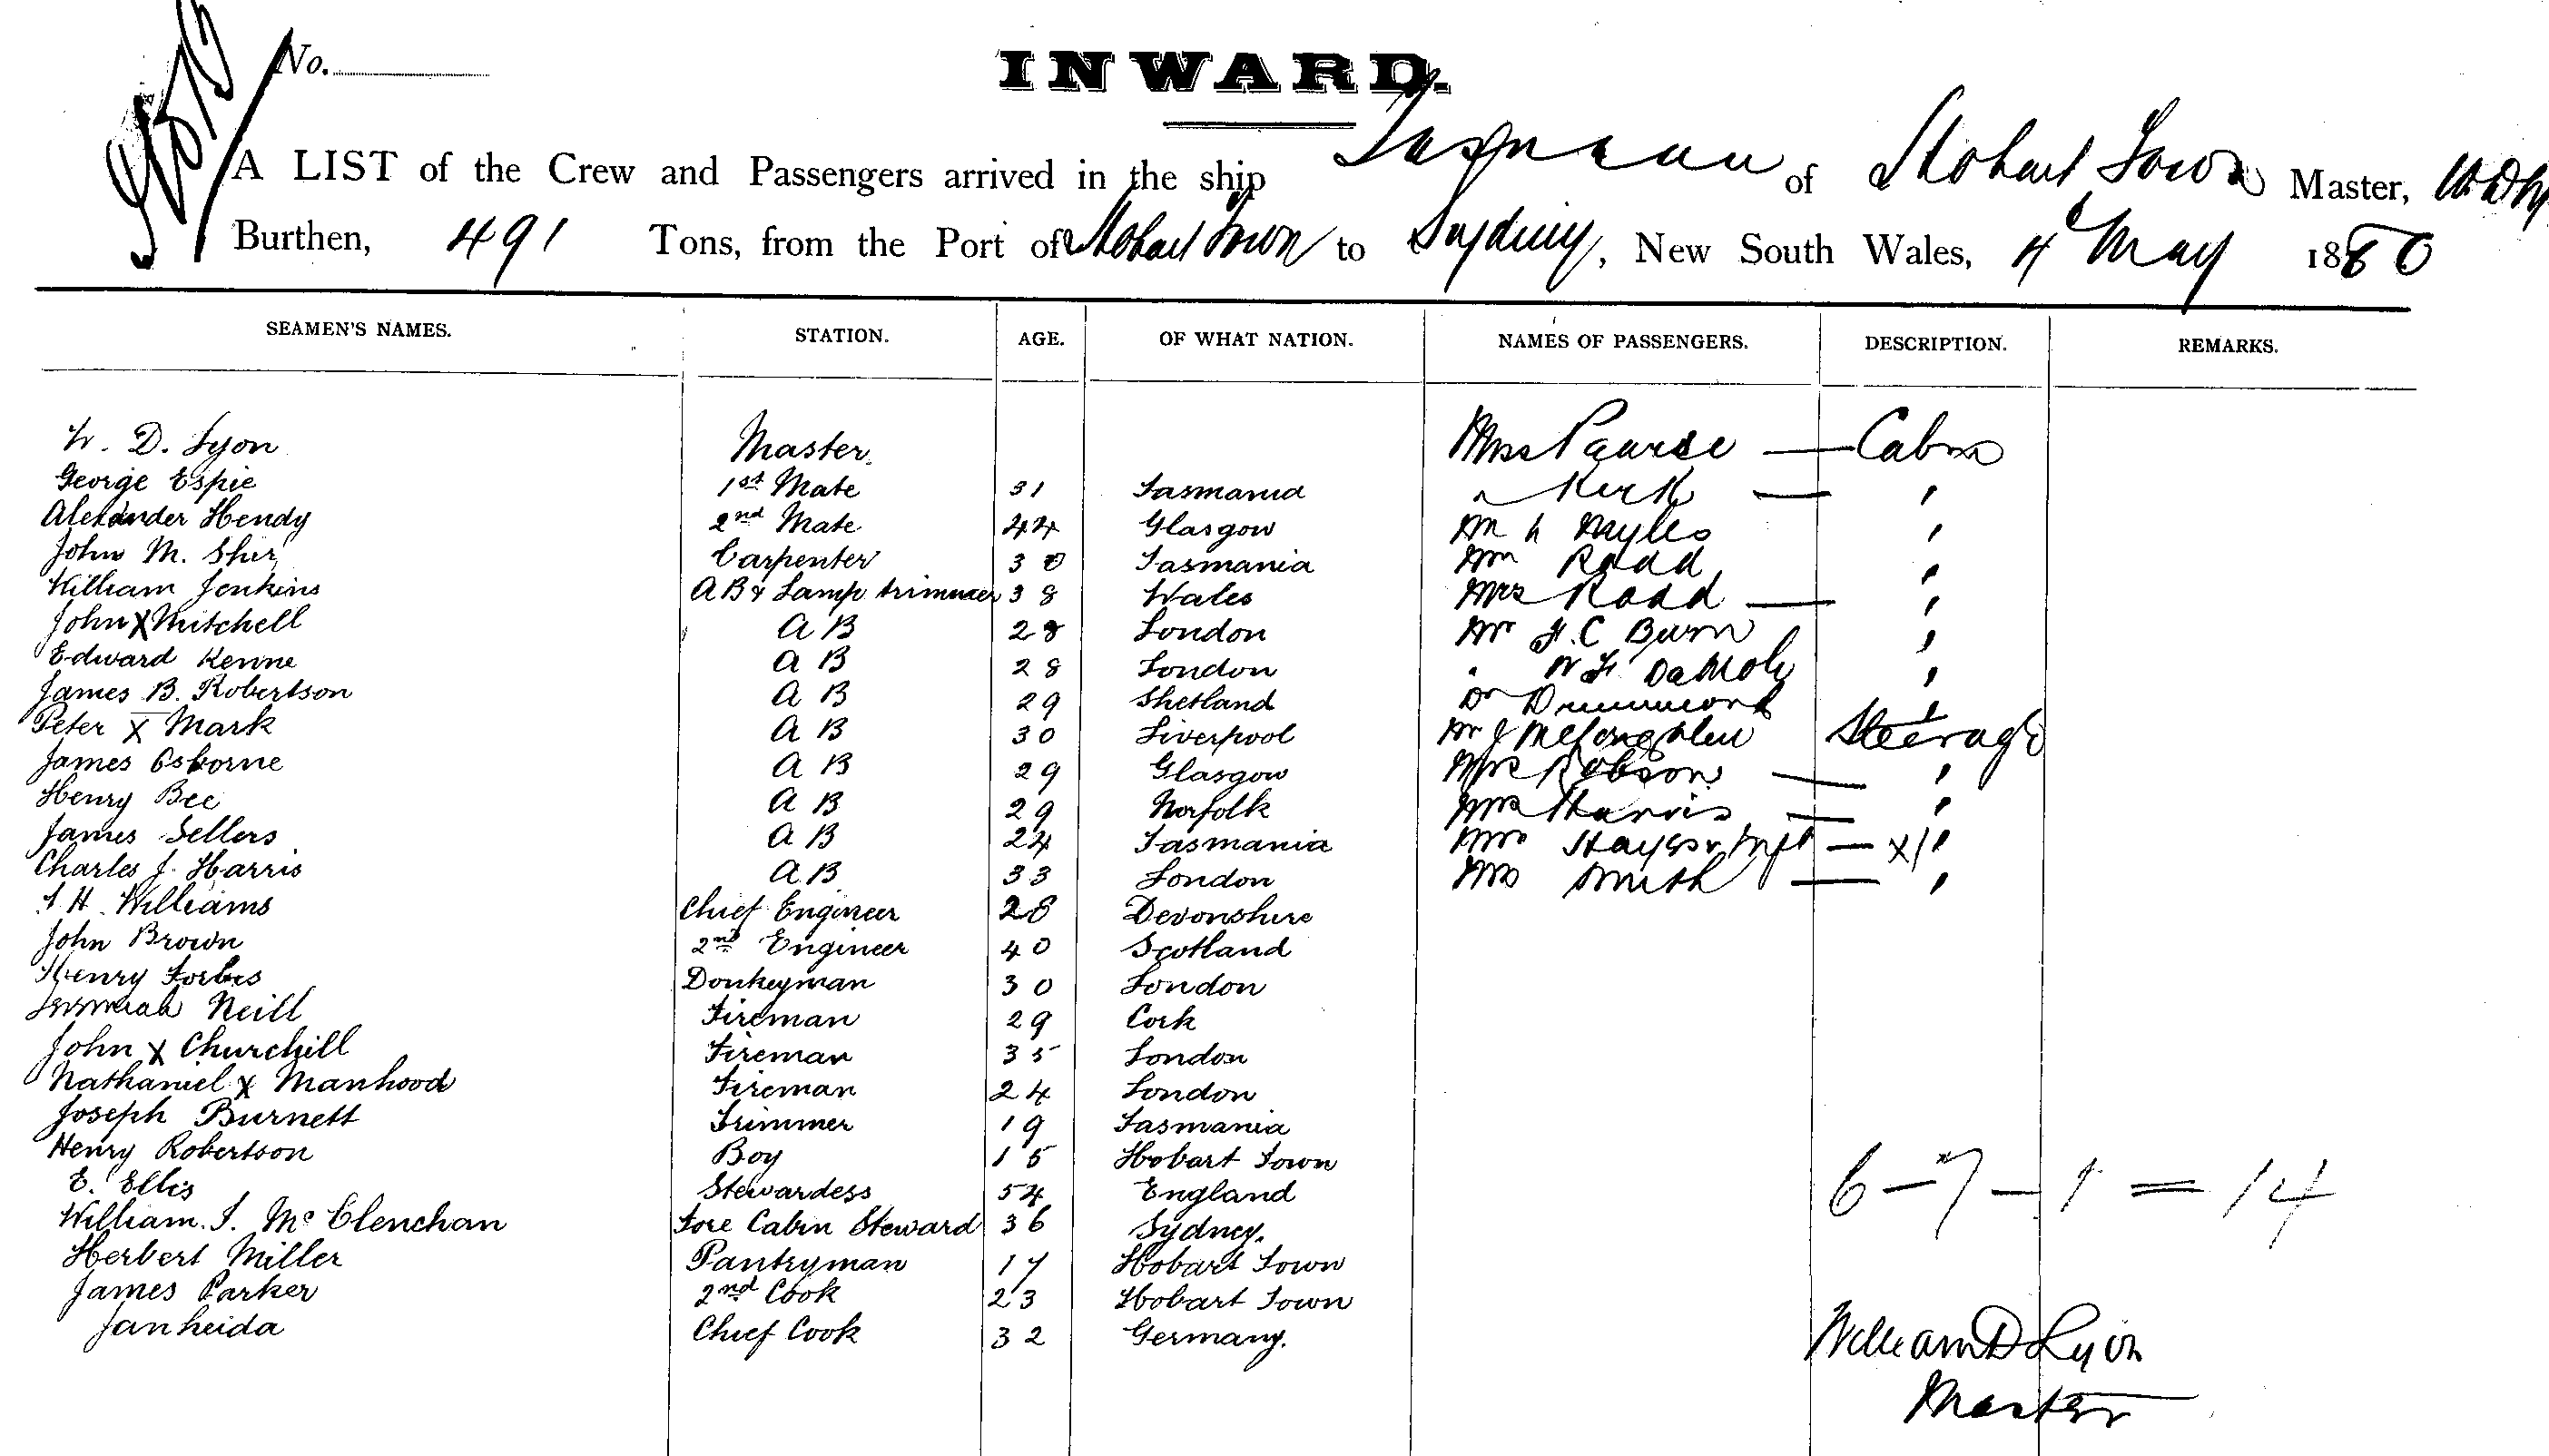 No.
INWARD.
A LIST of the Crew and Passengers arrived in the ship Tasman of Hobart Town Master, W D Ly
Burthen, 491 Tons, from the Port of Hobart Town to Sydney, New South Wales, 4 May 1880
SEAMEN'S NAMES. STATION. AGE. OF WHAT NATION. NAMES OF PASSENGERS. DESCRIPTION. REMARKS.
W. D. Lyon Master. Mrs Pearse — Cabin
George Espie 1st Mate 31 Tasmania " Kirk — "
Alexander Hendy 2nd Mate 44 Glasgow Myles "
John M. Carpenter 30 Tasmania Mr Radd "
William Jenkins AB & Lamp trimmer 38 Wales Mrs Radd — "
John X Mitchell AB 28 London Mr F.C Burn "
Edward Kenne AB 28 London "
James B. Robertson AB 29 Shetland Dr Drummond "
Peter X Mark AB 30 Liverpool Mr J Steerage
James Osborne AB 29 Glasgow Mrs Robson — "
Henry Bee AB 29 Norfolk Mrs Harris — "
James Sellers AB 24 Tasmania Mrs Hayes & Inft — X/"
Charles J. Harris AB 33 London Mrs Smith — "
Williams Chief Engineer 28 Devonshire
John Brown 2nd Engineer 40 Scotland
Henry Forbes Donkeyman 30 London
Jeremiah Neill Fireman 29 Cork
John X Churchill Fireman 35 London
Nathaniel X Manhood Fireman 24 London
Joseph Burnett Trimmer 19 Tasmania
Henry Robertson Boy 15 Hobart Town
E. Ellis Stewardess 54 England
William. J. Mc Clenchan Fore Cabin Steward 36 Sydney.
Herbert Miller Pantryman 17 Hobart Town
James Parker 2nd Cook 23 Hobart Town
Janheida Chief Cook 32 Germany.
6 — 7 — 1 = 14
William D Lyon
Master